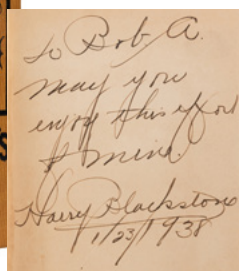 To Bob. A.
may you
enjoy this effort
of mine.
Harry Blackstone
1/23/1938